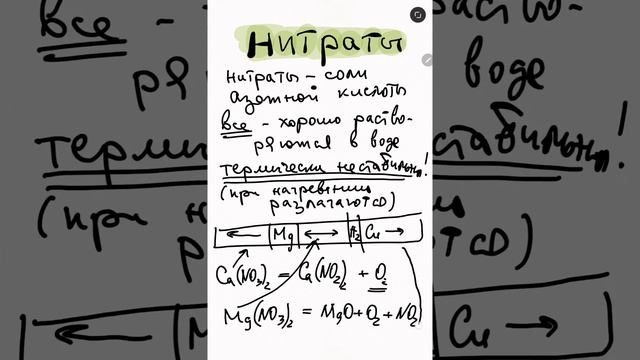 Нитраты
нитраты – соли
азотной кислоты
все – хорошо раство-
ряются в воде
термически нестабильны!
(при нагревании
разлагаются)
← |Mg| ↔ |H₂| Cu →
Ca(NO₃)₂ = Ca(NO₂)₂ + O₂
Mg(NO₃)₂ = MgO + O₂ + NO₂